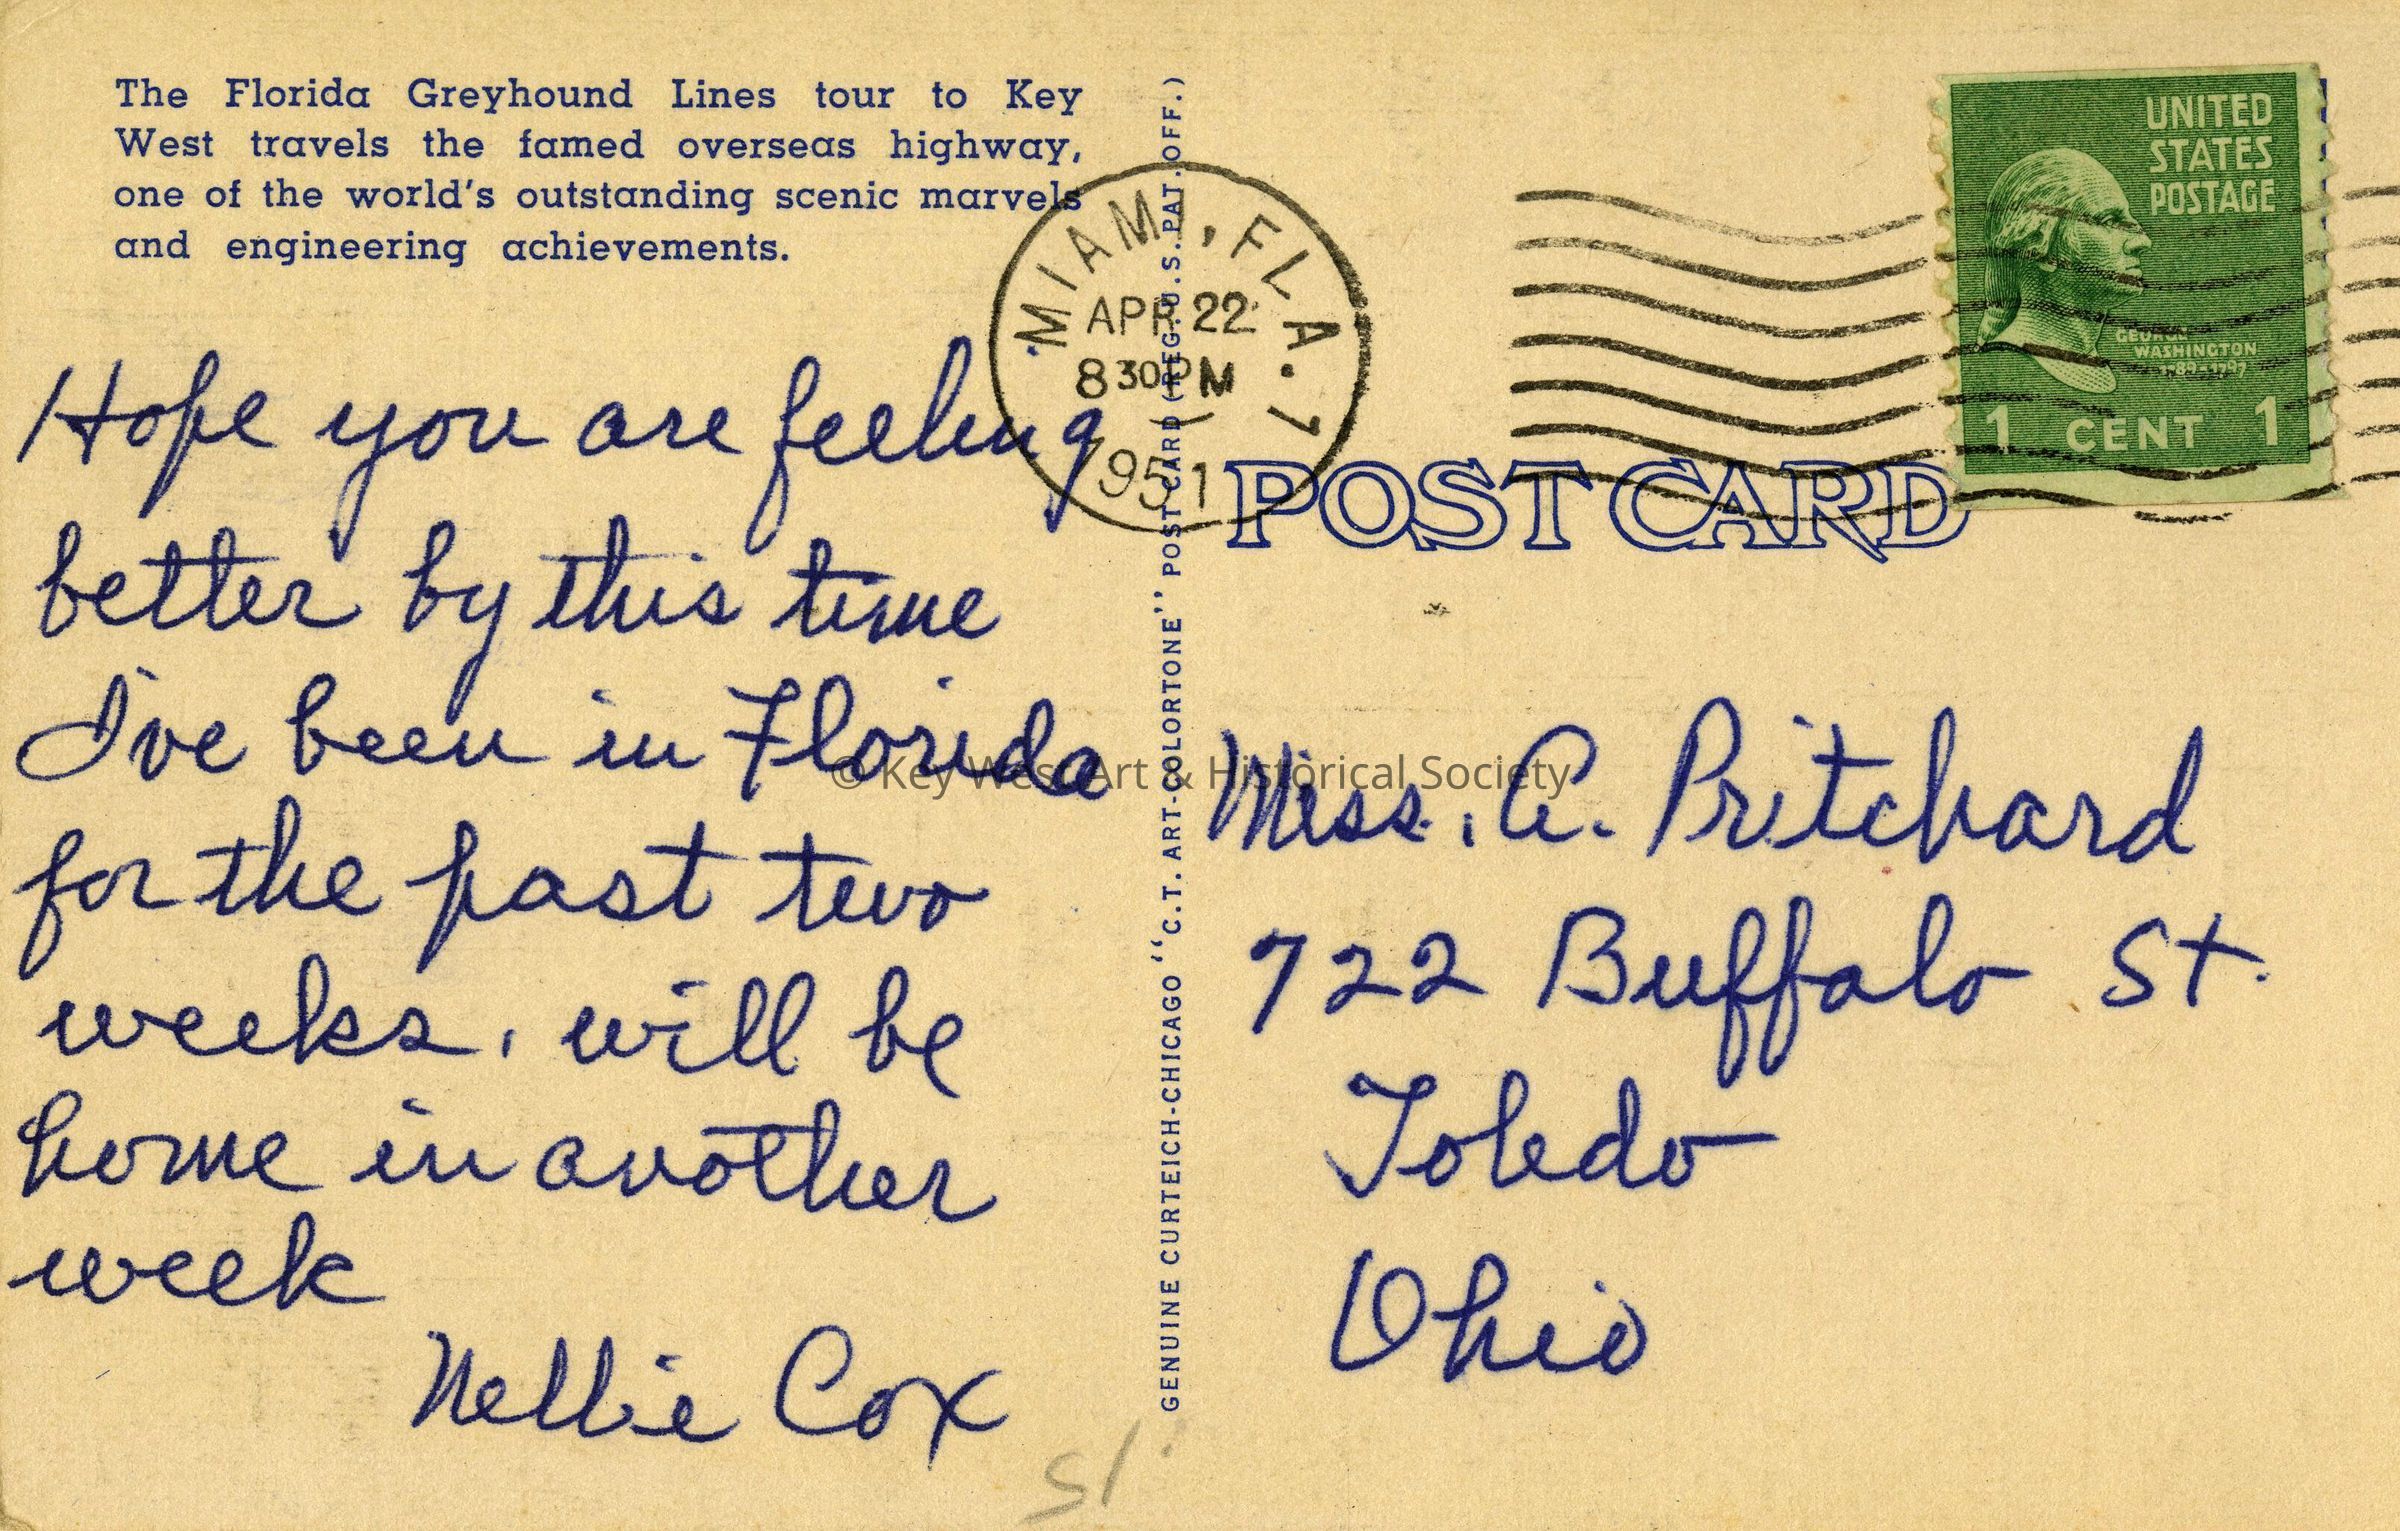 The Florida Greyhound Lines tour to Key
West travels the famed overseas highway,
one of the world's outstanding scenic marvels
and engineering achievements.
Hope you are feeling
better by this time
I've been in Florida
for the past two
weeks, will be
home in another
week
Nellie Cox
51
GENUINE CURTEICH-CHICAGO "C.T. ART-COLORTONE" POST CARD (REG. U.S. PAT. OFF.)
MIAMI, FLA. 7
APR 22
8 30 PM
1951
UNITED
STATES
POSTAGE
GEORGE
WASHINGTON
1789-1797
1 CENT 1
POST CARD
Miss. A. Pritchard
722 Buffalo St.
Toledo
Ohio
© Key West Art & Historical Society